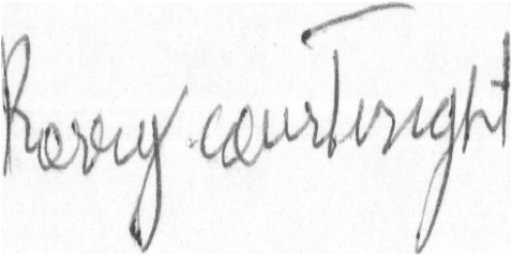 Rorry courtwright